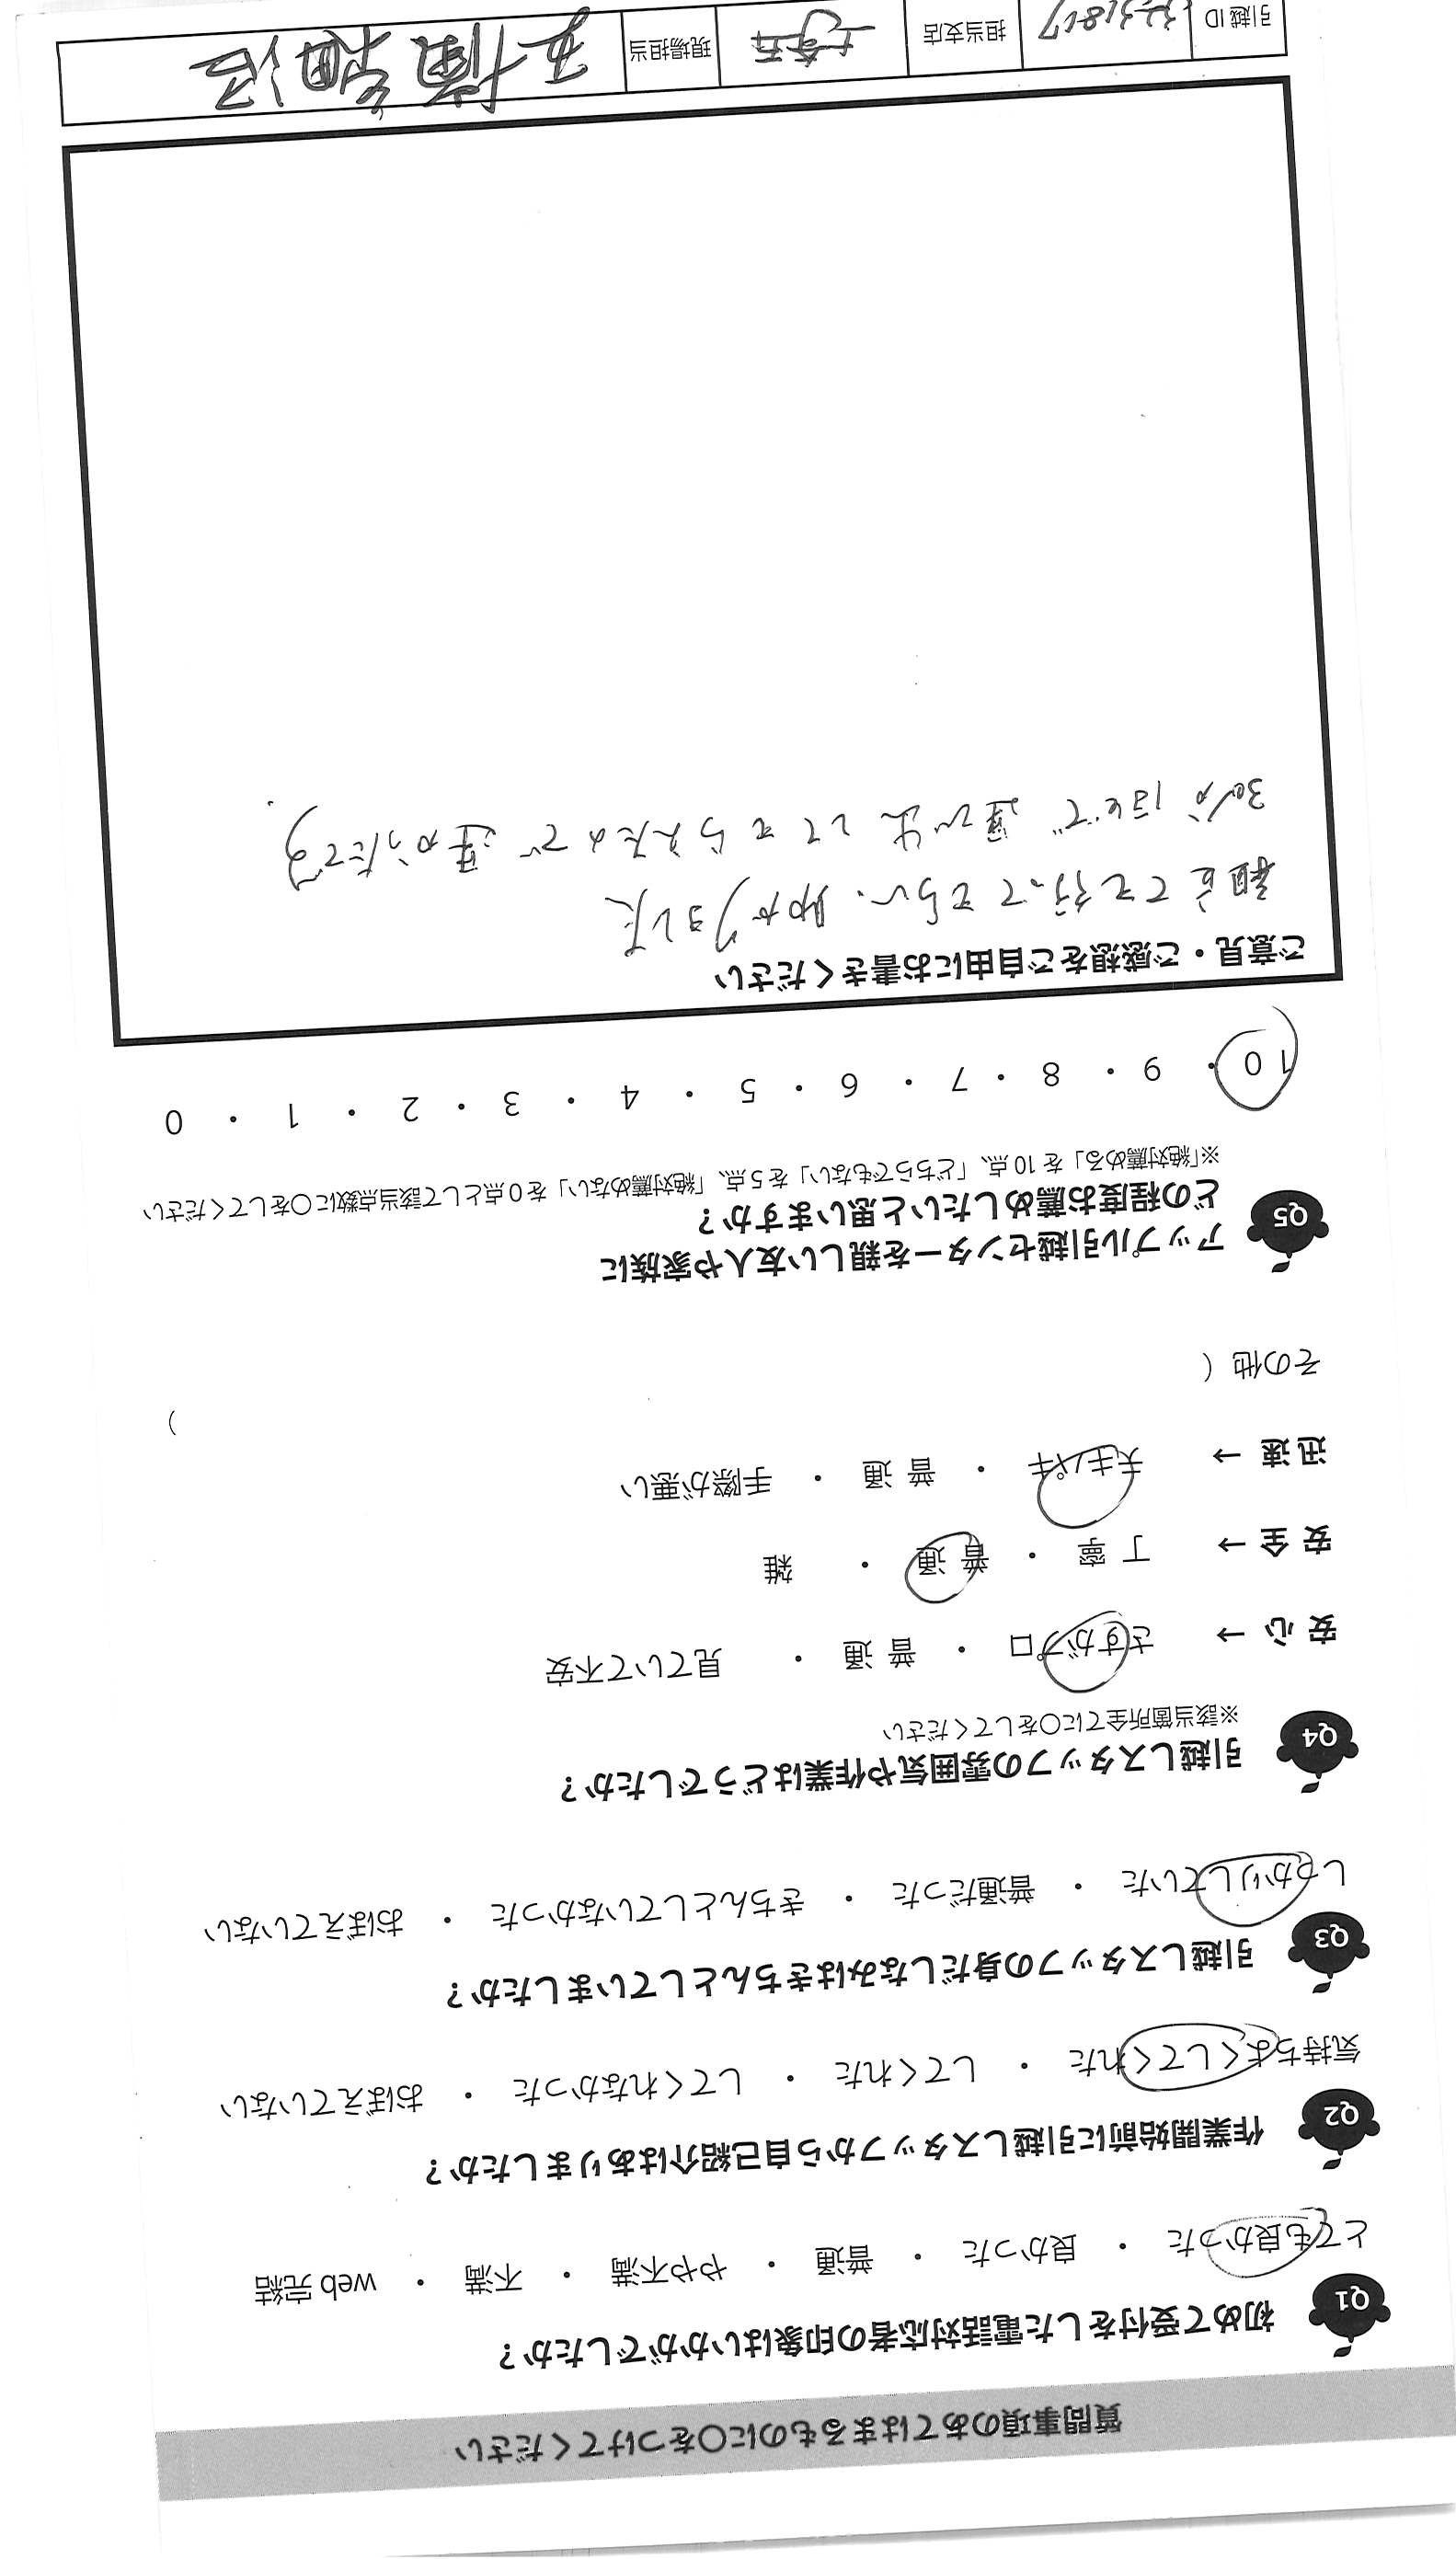 質問事項のあてはまるものに○をつけてください
Q1 初めて受付をした電話対応者の印象はいかがでしたか？
とても良かった ・ 良かった ・ 普通 ・ やや不満 ・ 不満 ・ web 完結
Q2 作業開始前に引越しスタッフから自己紹介はありましたか？
気持ちよくしてくれた ・ してくれた ・ してくれなかった ・ おぼえていない
Q3 引越しスタッフの身だしなみはきちんとしていましたか？
しっかりしていた ・ 普通だった ・ きちんとしていなかった ・ おぼえていない
Q4 引越しスタッフの雰囲気や作業はどうでしたか？
※該当箇所全てに○をしてください
安心 → さすがプロ ・ 普通 ・ 見ていて不安
安全 → 丁寧 ・ 普通 ・ 雑
迅速 → テキパキ ・ 普通 ・ 手際が悪い
その他 ( )
Q5 アップル引越センターを親しい友人や家族に
どの程度お薦めしたいと思いますか？
※「絶対薦める」を 10 点、「どちらでもない」を 5 点、「絶対薦めない」を 0 点として該当点数に○をしてください
10 ・ 9 ・ 8 ・ 7 ・ 6 ・ 5 ・ 4 ・ 3 ・ 2 ・ 1 ・ 0
ご意見・ご感想をご自由にお書きください
組立ても行ってもらい、助かりました
30分ほどで運び出してもらえたので早かったです.
引越 ID 担当支店 現場担当